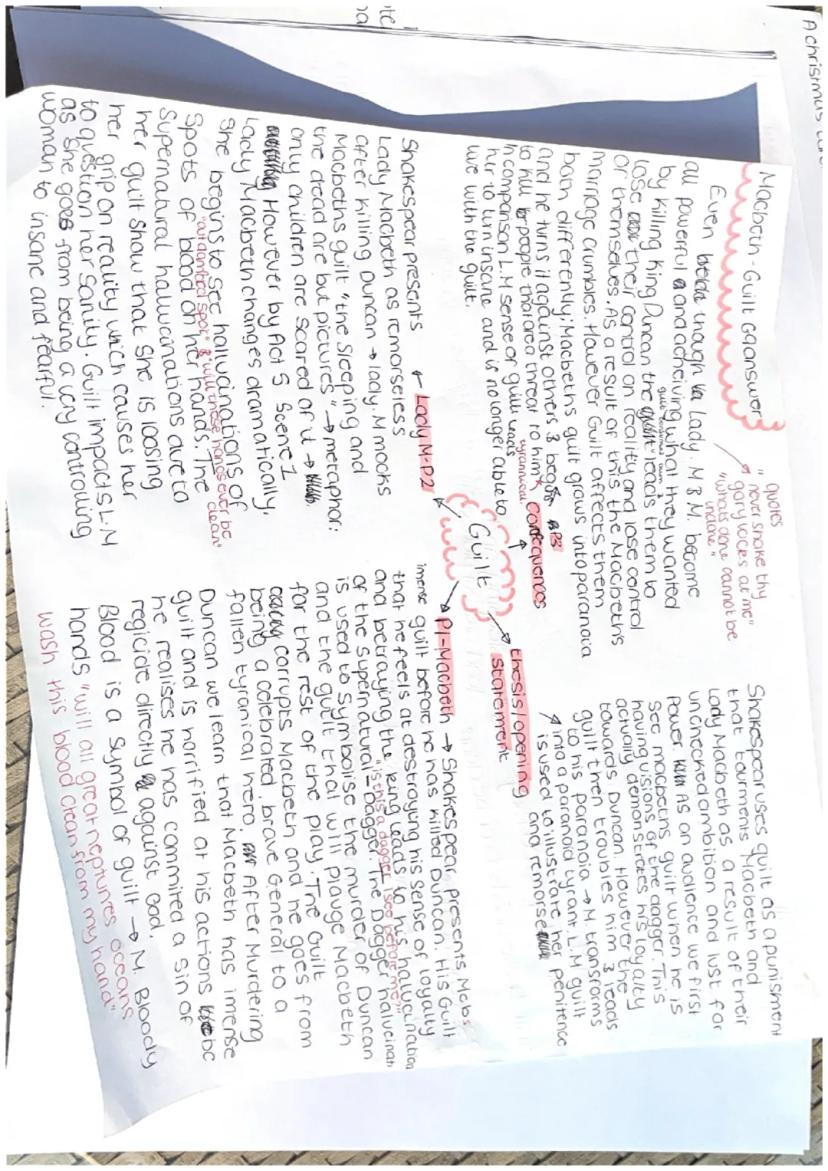 A christmas
Macbeth - Guilt G9 answer
" quotes
never shake thy
gory locks at me"
"whats done cannot be
undone"
Even though Lady. M & M. become
all powerful and acheiving what they wanted
by killing King Duncan the guilt leads them to
lose their control on reality and lose control
of themselves. As a result of this the Macbeths
marriage crumbles. However Guilt affects them
both differently; Macbeths guilt grows into paranoia
and he turns it against others & begins
to kill people that are a threat to him
tyranical
In comparison L.M sense of guilt leads
her to turn insane and is no longer able to
live with the guilt.
P3
consequences
Shakespear uses guilt as a punishment
that tourments Macbeth and
lady Macbeth as a result of their
unchecked ambition and lust for
power. As an audience we first
see macbeths guilt when he is
having visions of the dagger. This
actually demonstrates his loyalty
towards Duncan. However the
guilt then troubles him & leads
to his paranoia → M. transforms
into a paranoid tyrant. L.M guilt
is used to illustrate her penitence
and remorse
thesis/opening
statement
Guilt
Lady M-P2
Shakespear presents
Lady Macbeth as remorseless
after killing Duncan → lady. M mocks
Macbeths guilt "the sleeping and
the dead are but pictures" → metaphor:
only children are scared of it →
However by Act 5 Scene 1
Lady Macbeth changes dramatically.
She begins to see hallucinations of
"out damned spot" & "will these hands ever be clean"
spots of blood on her hands. The
supernatural hallucinations due to
her guilt show that she is loosing
her grip on reality which causes her
to question her sanity. Guilt impacts L.M
as she goes from being a very controlling
woman to insane and fearful.
P1-Macbeth → Shakespear presents Mcbs
imense guilt before he has killed Duncan. His Guilt
that he feels at destroying his sense of loyalty
and betraying the king leads to his hallucination
"is this a dagger I see before me"
of the supernatural - Dagger. The Dagger hallucinati
is used to symbolise the murder of Duncan
and the guilt that will plauge Macbeth
for the rest of the play. The Guilt
corrupts Macbeth and he goes from
being a celebrated, brave General to a
fallen tyranical hero. After Murdering
Duncan we learn that Macbeth has imense
guilt and is horrified at his actions bc
he realises he has commited a sin of
regicide directly against God.
Blood is a symbol of guilt → M. Bloody
hands "will all great neptunes oceans
wash this blood clean from my hand"